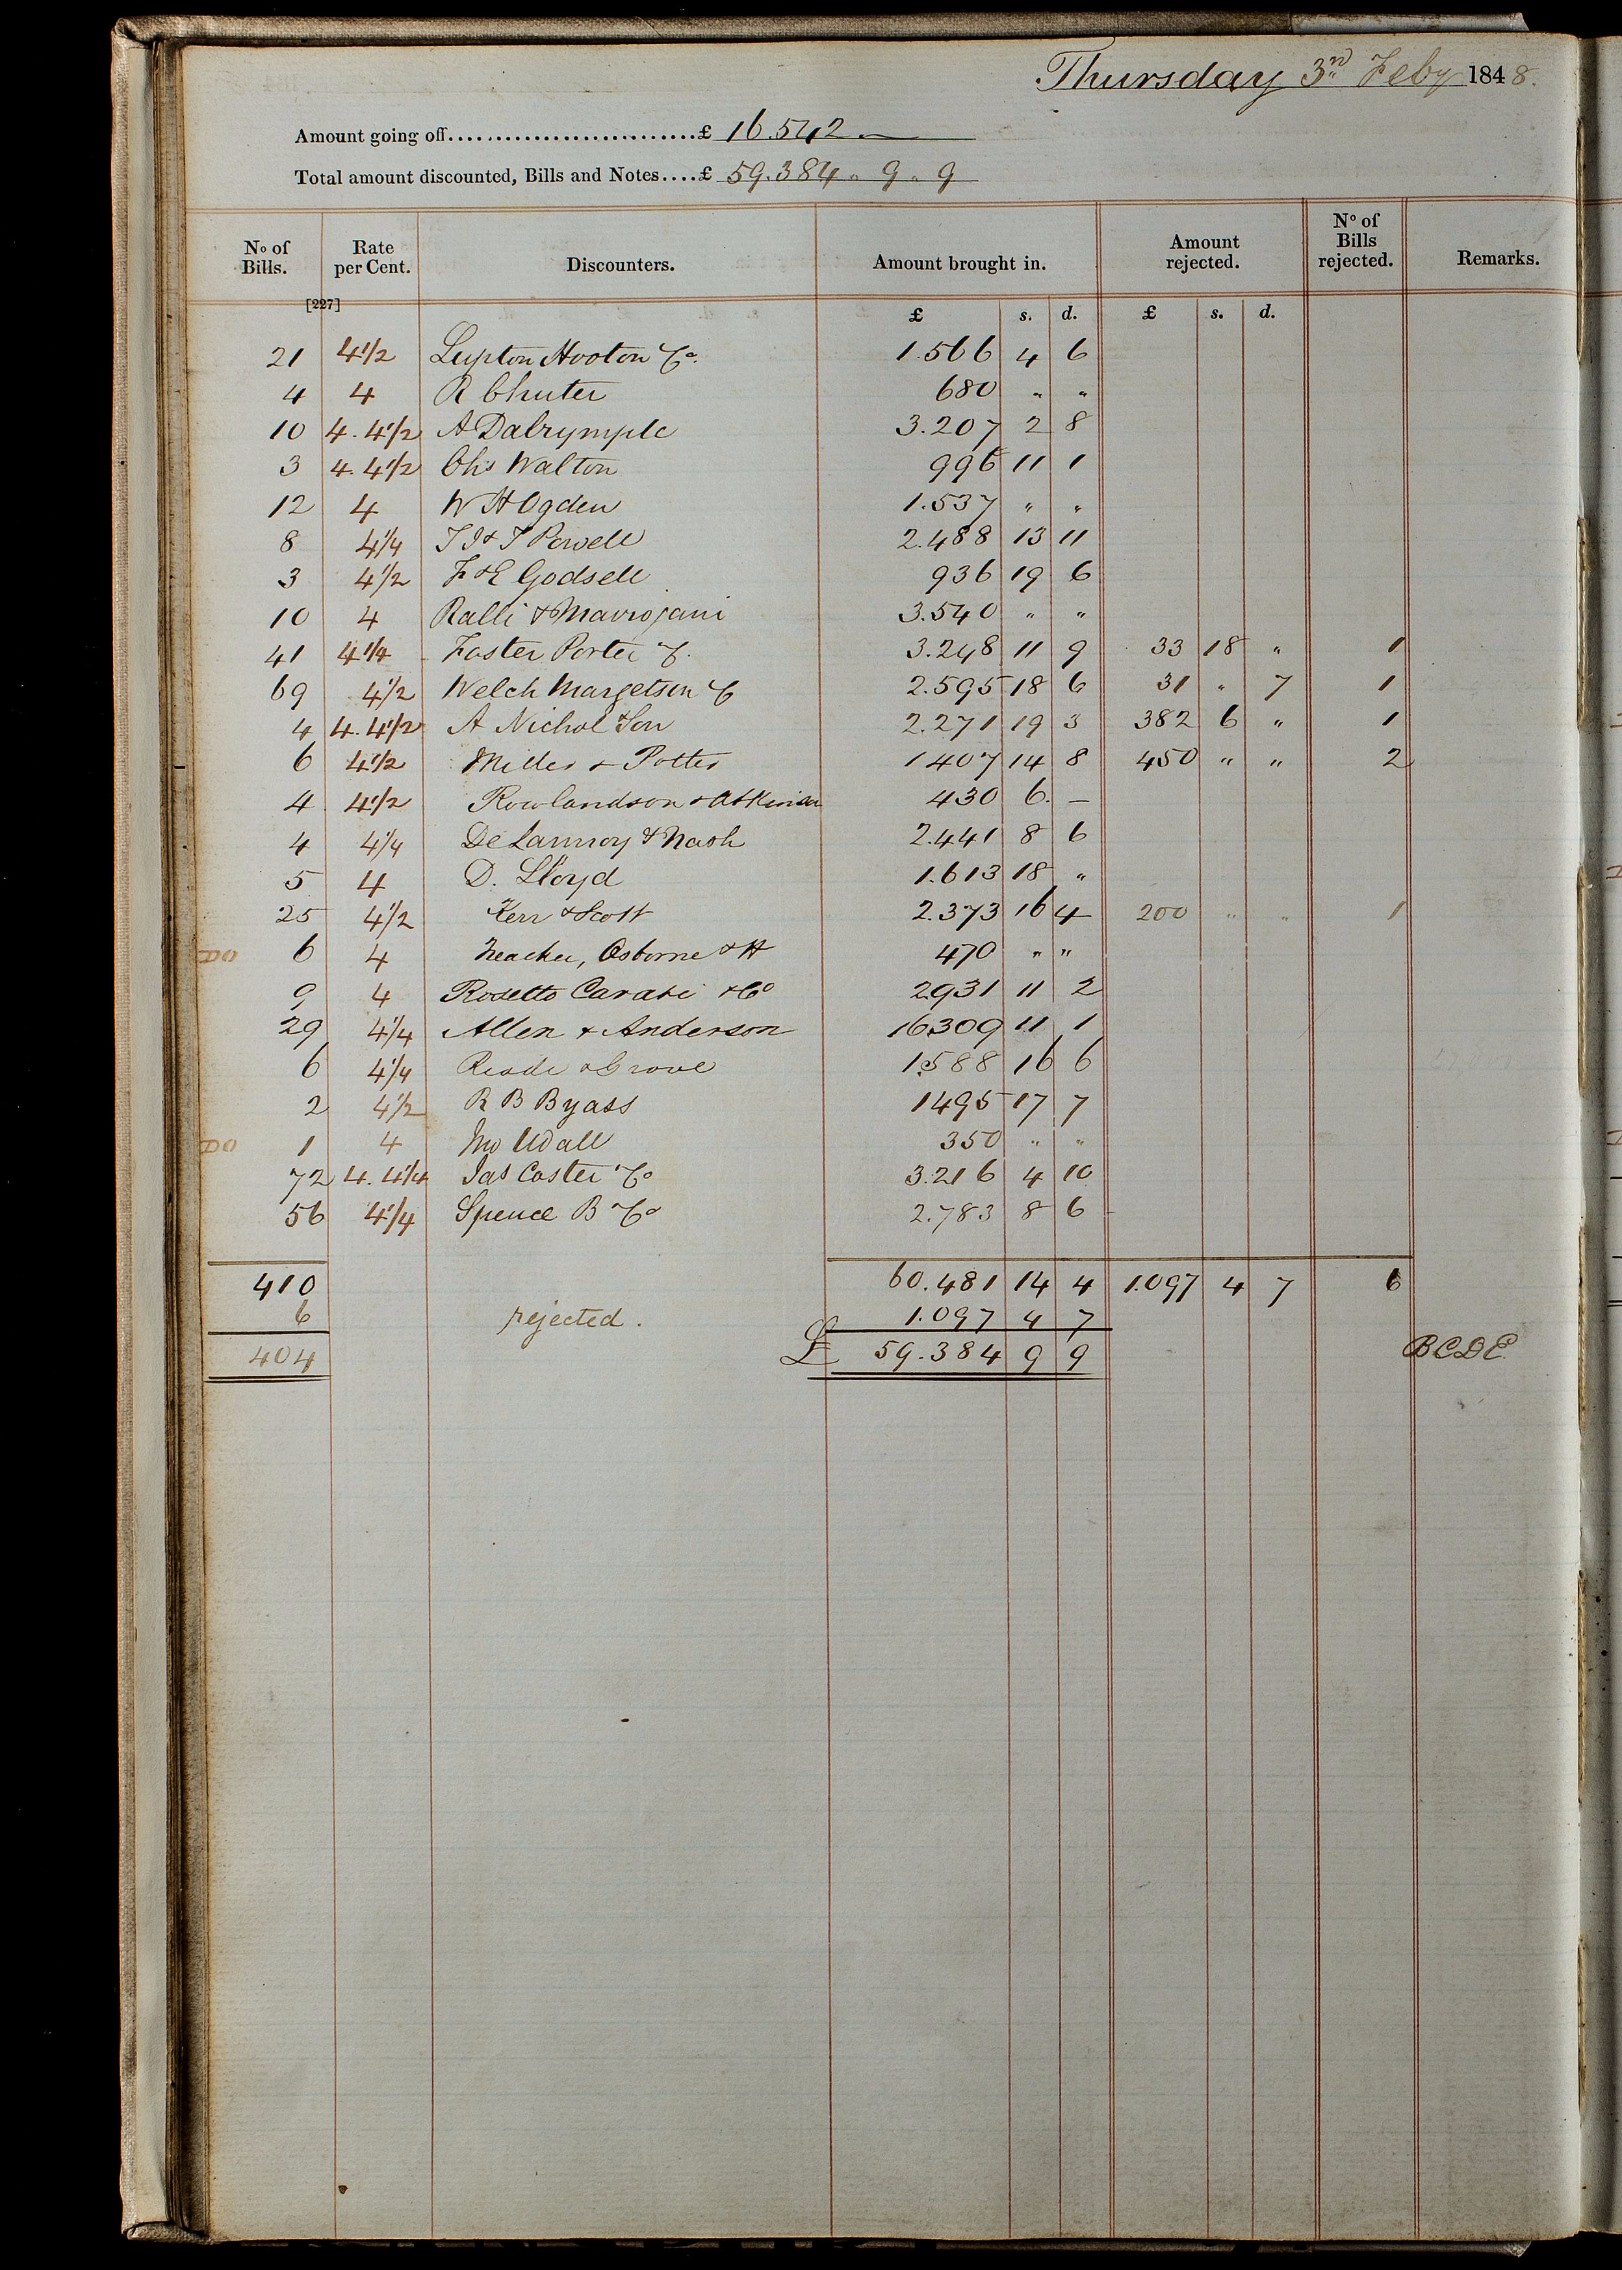 Thursday 3rd Feby 1848.
Amount going off..........................£ 16.542 —
Total amount discounted, Bills and Notes....£ 59.384 " 9 " 9
No of Bills. Rate per Cent. Discounters. Amount brought in. Amount rejected. No of Bills rejected. Remarks.
[227] £ s. d. £ s. d.
21 4 1/2 Lupton Hooton & Co. 1.566 4 6
4 4 R Chuter 680 " "
10 4. 4 1/2 A Dalrymple 3.207 2 8
3 4. 4 1/2 Chs Walton 996 11 1
12 4 W H Ogden 1.537 " "
8 4 1/4 T J & T Powell 2.488 13 11
3 4 1/2 F & E Godsell 936 19 6
10 4 Ralli & Mavrojani 3.540 " "
41 4 1/4 Foster Porter & C. 3.248 11 9 33 18 " 1
69 4 1/2 Welch Margetson & C 2.595 18 6 31 " 7 1
4 4. 4 1/2 A Nichol & Son 2.271 19 3 382 6 " 1
6 4 1/2 Miller & Potter 1407 14 8 450 " " 2
4 4 1/2 Rowlandson & Atkinson 430 6. —
4 4 1/4 De Lannoy & Nash 2.441 8 6
5 4 D. Lloyd 1.613 18 "
25 4 1/2 Kerr & Scott 2.373 16 4 200 " " 1
DO 6 4 Neacher, Osborne & H 470 " "
9 4 Rosetto Carati & Co 2931 11 2
29 4 1/4 Allen & Anderson 16309 11 1
6 4 1/4 Reade & Grove 1.588 16 6
2 4 1/2 R B Byass 1495 17 7
DO 1 4 Jno Udall 350 " "
72 4. 4 1/4 Jas Coster & Co 3.216 4 10
56 4 1/4 Spence B & Co 2.783 8 6
410 60.481 14 4 1.097 4 7 6
6 rejected. 1.097 4 7
404 £ 59.384 9 9 BCDE